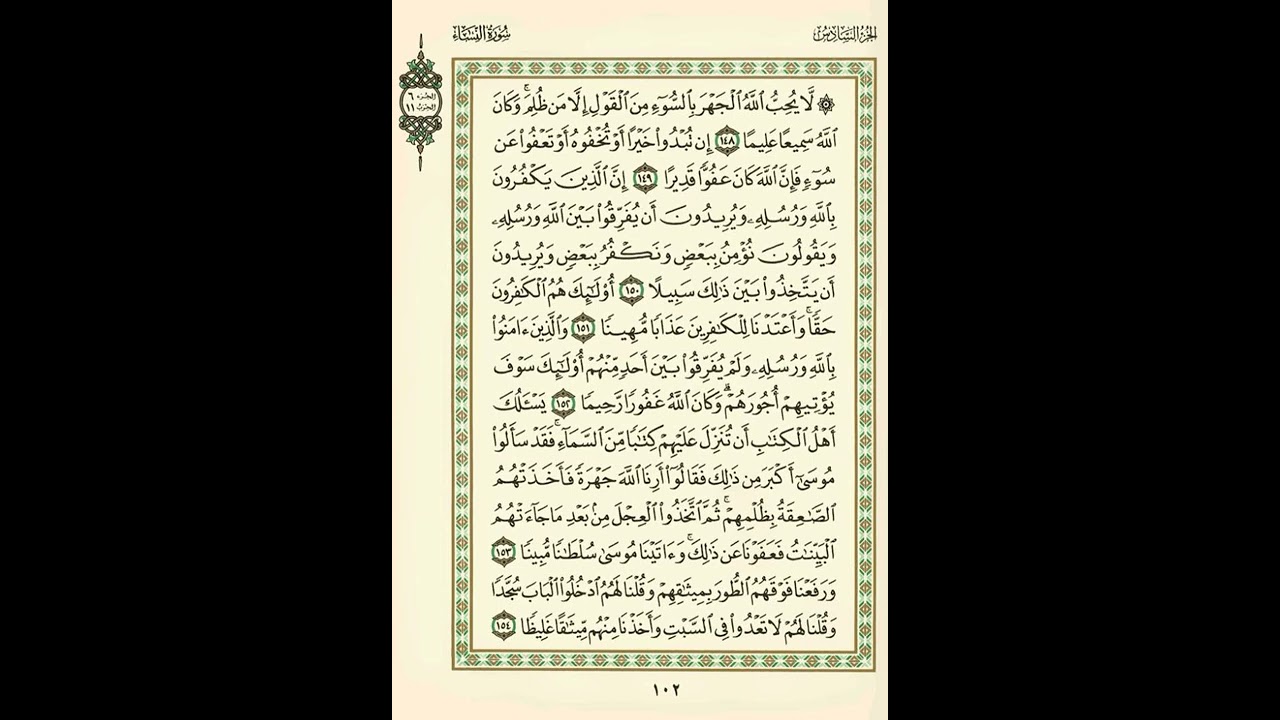 الجزء السادس
سورة النساء
الجزء ٦
الحزب ١١
۞ لَّا يُحِبُّ ٱللَّهُ ٱلۡجَهۡرَ بِٱلسُّوٓءِ مِنَ ٱلۡقَوۡلِ إِلَّا مَن ظُلِمَۚ وَكَانَ
ٱللَّهُ سَمِيعًا عَلِيمًا ١٤٨ إِن تُبۡدُواْ خَيۡرًا أَوۡ تُخۡفُوهُ أَوۡ تَعۡفُواْ عَن
سُوٓءٖ فَإِنَّ ٱللَّهَ كَانَ عَفُوّٗا قَدِيرًا ١٤٩ إِنَّ ٱلَّذِينَ يَكۡفُرُونَ
بِٱللَّهِ وَرُسُلِهِۦ وَيُرِيدُونَ أَن يُفَرِّقُواْ بَيۡنَ ٱللَّهِ وَرُسُلِهِۦ
وَيَقُولُونَ نُؤۡمِنُ بِبَعۡضٖ وَنَكۡفُرُ بِبَعۡضٖ وَيُرِيدُونَ
أَن يَتَّخِذُواْ بَيۡنَ ذَٰلِكَ سَبِيلًا ١٥٠ أُوْلَٰٓئِكَ هُمُ ٱلۡكَٰفِرُونَ
حَقّٗاۚ وَأَعۡتَدۡنَا لِلۡكَٰفِرِينَ عَذَابٗا مُّهِينٗا ١٥١ وَٱلَّذِينَ ءَامَنُواْ
بِٱللَّهِ وَرُسُلِهِۦ وَلَمۡ يُفَرِّقُواْ بَيۡنَ أَحَدٖ مِّنۡهُمۡ أُوْلَٰٓئِكَ سَوۡفَ
يُؤۡتِيهِمۡ أُجُورَهُمۡۚ وَكَانَ ٱللَّهُ غَفُورٗا رَّحِيمٗا ١٥٢ يَسۡـَٔلُكَ
أَهۡلُ ٱلۡكِتَٰبِ أَن تُنَزِّلَ عَلَيۡهِمۡ كِتَٰبٗا مِّنَ ٱلسَّمَآءِۚ فَقَدۡ سَأَلُواْ
مُوسَىٰٓ أَكۡبَرَ مِن ذَٰلِكَ فَقَالُوٓاْ أَرِنَا ٱللَّهَ جَهۡرَةٗ فَأَخَذَتۡهُمُ
ٱلصَّٰعِقَةُ بِظُلۡمِهِمۡۚ ثُمَّ ٱتَّخَذُواْ ٱلۡعِجۡلَ مِنۢ بَعۡدِ مَا جَآءَتۡهُمُ
ٱلۡبَيِّنَٰتُ فَعَفَوۡنَا عَن ذَٰلِكَۚ وَءَاتَيۡنَا مُوسَىٰ سُلۡطَٰنٗا مُّبِينٗا ١٥٣
وَرَفَعۡنَا فَوۡقَهُمُ ٱلطُّورَ بِمِيثَٰقِهِمۡ وَقُلۡنَا لَهُمُ ٱدۡخُلُواْ ٱلۡبَابَ سُجَّدٗا
وَقُلۡنَا لَهُمۡ لَا تَعۡدُواْ فِي ٱلسَّبۡتِ وَأَخَذۡنَا مِنۡهُم مِّيثَٰقًا غَلِيظٗا ١٥٤
١٠٢